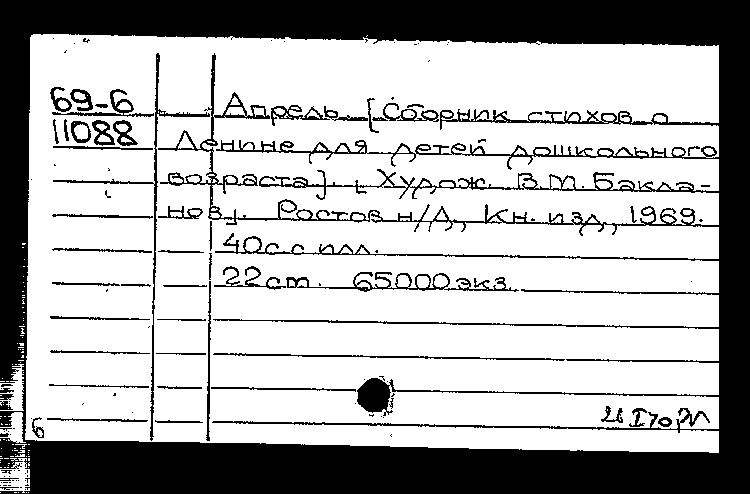 69-6 Апрель. [Сборник стихов о
11088 Ленине для детей дошкольного
возраста]. [Худож. В.М. Бакла-
нов]. Ростов н/Д., Кн. изд., 1969.
40с с илл.
22 cm. 65000 экз.
6